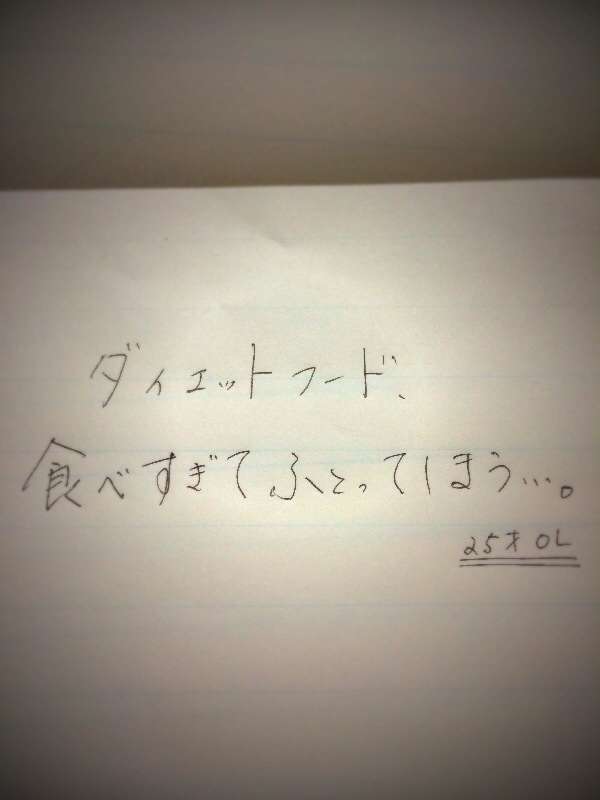 ダイエットフード、
食べすぎてふとってしまう…。
25才 OL